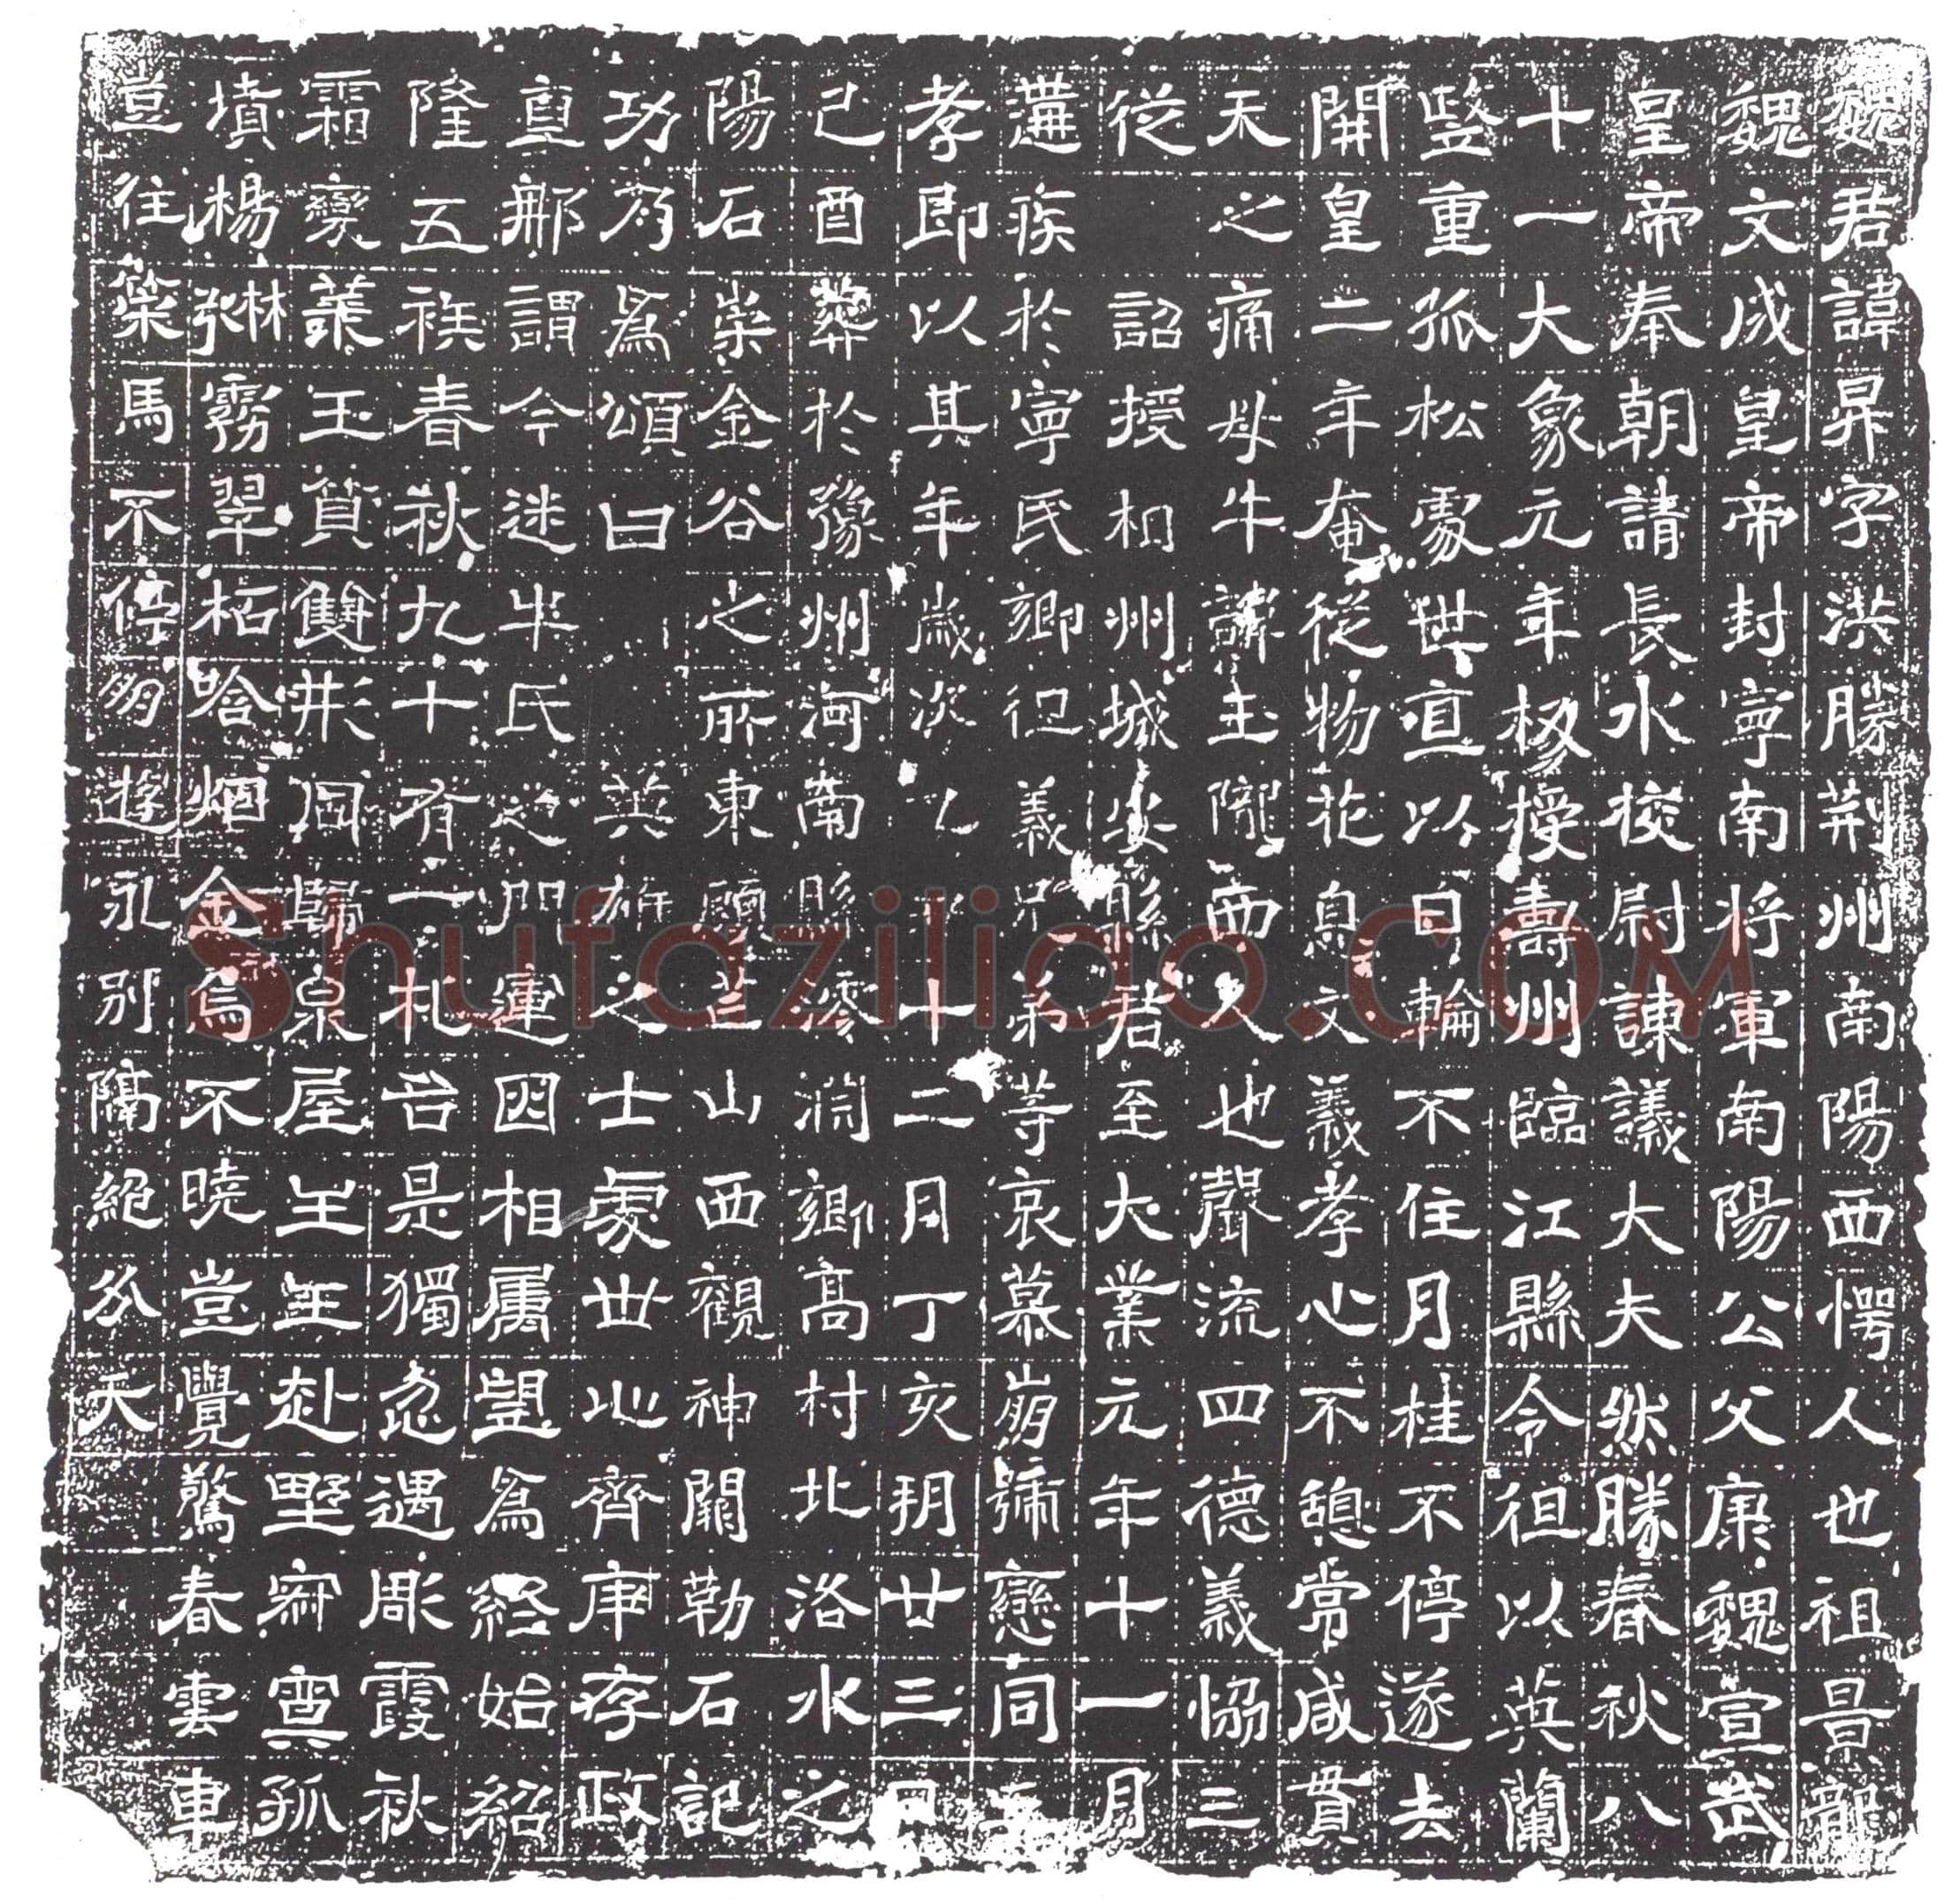 魏君諱昇字洪勝荆州南陽西愕人也祖龍
魏文成皇帝封寧南将軍南陽公父康魏宣武
皇帝奉朝請長水校尉諫議大夫然勝春秋八
十一大象元年板授壽州臨江縣令徂以英蘭
竪重孤松處世直以日輪不住月桂不停遂去
開皇二年奄從物花息文義孝心不憩常咸貫
天之痛母牛諱玉隴西人也聲流四德義恊三
從詔授相州城安縣君至大業元年十一月
遘疾於寧民鄉徂義兄弟等哀慕崩號戀同
孝即以其年歲次乙丑十二月丁亥朔廿三日
己酉葬於豫州河南縣澪澗鄉高村北洛水之
陽石崇金谷之所東顧芒山西觀神闕勒石記
功乃為頌曰英雄之士處世心齊庚存政
直邪謂今迷牛氏之門運因相屬望為終始紹
隆五族春秋九十有一札召是獨忽遇彫霞秋
霜变叢玉質雙形同歸泉屋生生赴野寂寞孤
墳楊林張霧翠柘含烟金烏不曉豈覺驚春雲車
豈往策馬不停遊永別隔絕分天
shufaziliao.com